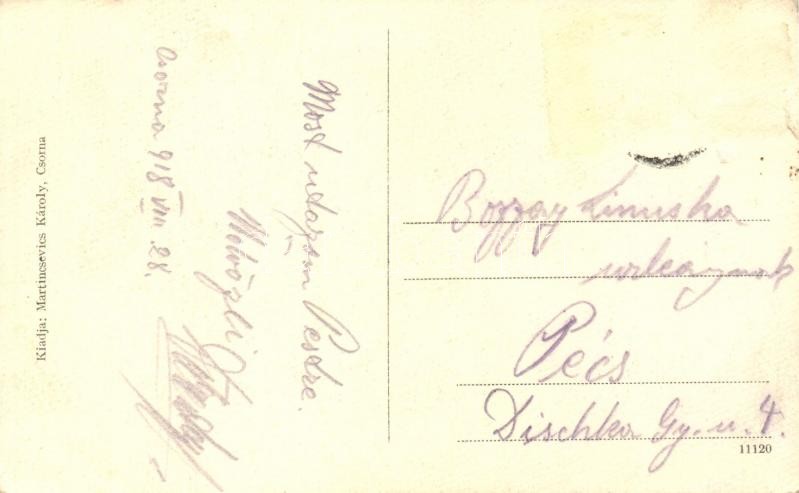 Csorna 918 VIII. 28.
Most utazom Pestre.
Üdvözli
Bozzay Linuska
urleánynak
Pécs
Dischka Gy. u. 4.
11120
Kiadja: Martincsevics Károly, Csorna